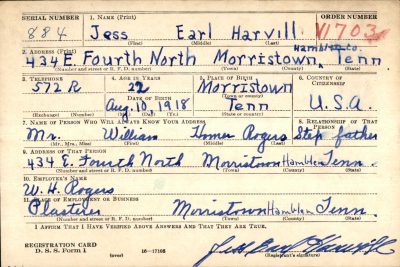 SERIAL NUMBER 1. NAME (Print) ORDER NUMBER
884 Jess Earl Harvill V1703
(First) (Middle) (Last)
2. ADDRESS (Print) Hamblen co.
434 E. Fourth North Morristown, Tenn
(Number and street or R. F. D. number) (Town) (County) (State)
3. TELEPHONE 4. AGE IN YEARS 5. PLACE OF BIRTH 6. COUNTRY OF CITIZENSHIP
572 R 22 Morristown
DATE OF BIRTH (Town or county)
Aug. 10, 1918 Tenn U.S.A.
(Exchange) (Number) (Mo.) (Day) (Yr.) (State or country)
7. NAME OF PERSON WHO WILL ALWAYS KNOW YOUR ADDRESS 8. RELATIONSHIP OF THAT PERSON
Mr. William Homer Rogers Step father
(Mr., Mrs., Miss) (First) (Middle) (Last)
9. ADDRESS OF THAT PERSON
434 E. Fourth North Morristown Hamblen Tenn.
(Number and street or R. F. D. number) (Town) (County) (State)
10. EMPLOYER'S NAME
W. H. Rogers
11. PLACE OF EMPLOYMENT OR BUSINESS
Plasterer Morristown Hamblen Tenn.
(Number and street or R. F. D. number) (Town) (County) (State)
I AFFIRM THAT I HAVE VERIFIED ABOVE ANSWERS AND THAT THEY ARE TRUE.
REGISTRATION CARD
D. S. S. Form 1 (over) 16—17105 Jess Earl Harvill
(Registrant's signature)